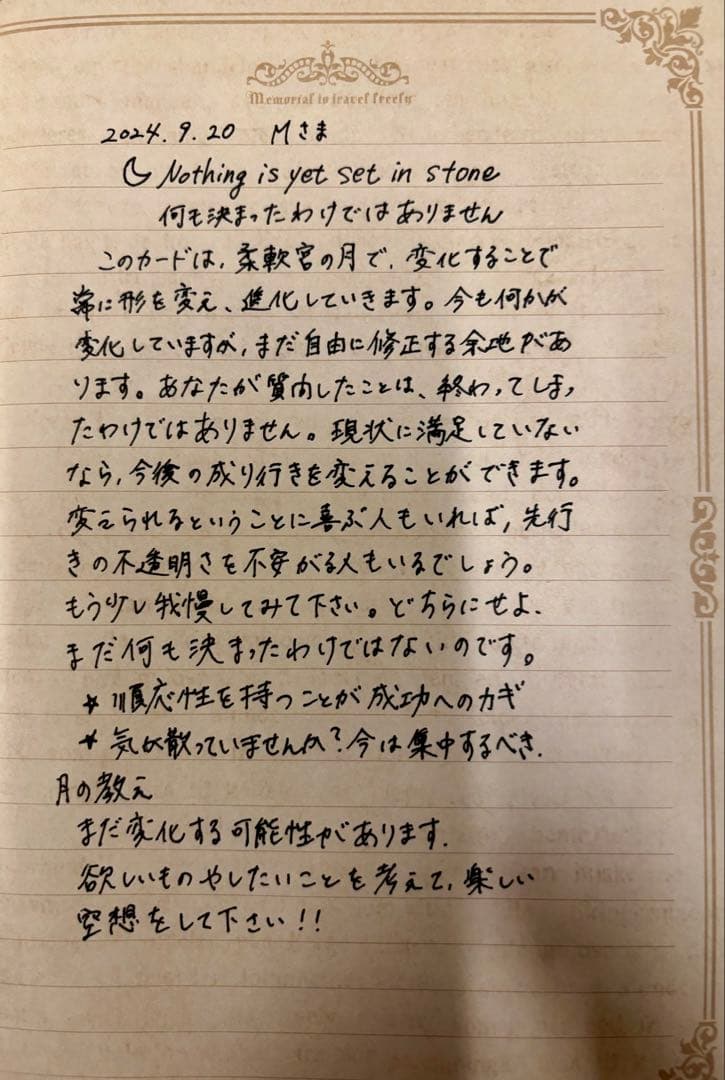 Memorial to travel freely
2024.9.20 Mさま
☾ Nothing is yet set in stone
何も決まったわけではありません
このカードは、柔軟宮の月で、変化することで
常に形を変え、進化していきます。今も何かが
変化していますが、まだ自由に修正する余地があ
ります。あなたが質内したことは、終わってしまっ
たわけではありません。現状に満足していない
なら、今後の成り行きを変えることができます。
変えられるということに喜ぶ人もいれば、先行
きの不透明さを不安がる人もいるでしょう。
もう少し我慢してみて下さい。どちらにせよ、
まだ何も決まったわけではないのです。
* 順応性を持つことが成功へのカギ
* 気が散っていませんか?今は集中するべき.
月の教え
まだ変化する可能性があります.
欲しいものやしたいことを考えて、楽しい
空想をして下さい!!